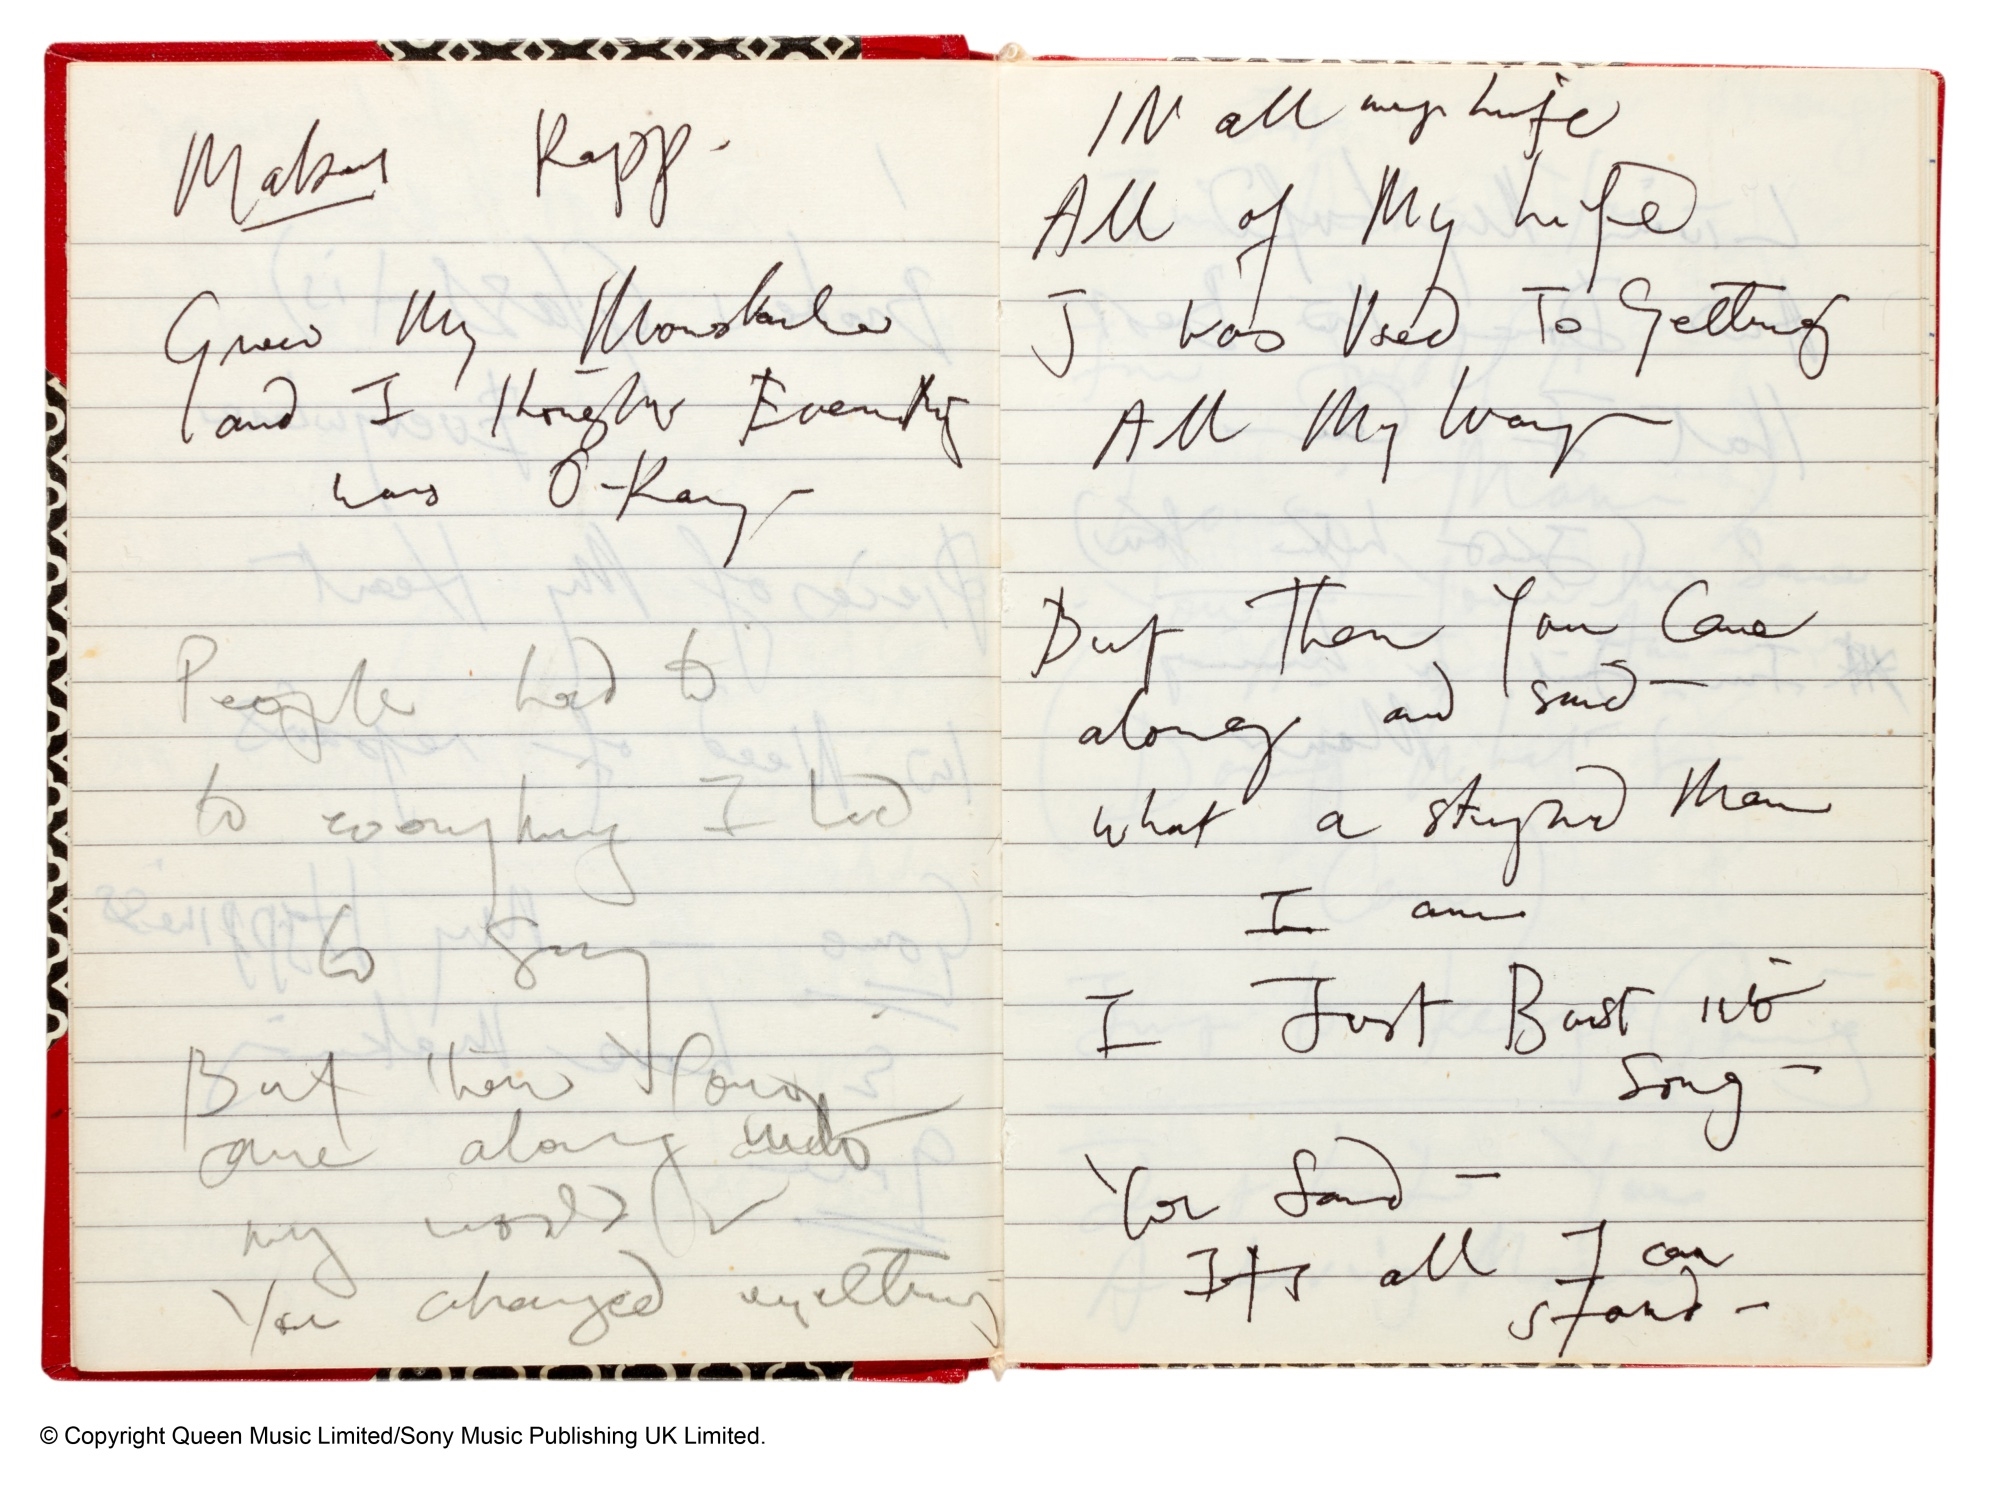 Rapp.
Grew My Moustache
and I thought Everything
was O-Kay -
People had to
to everything I had
to say
But then You
came along into
my world
You changed everything
IN all my Life
All of My Life
I was Used To Getting
All My Way -
But Then You Came
along and said -
what a stupid Man
I am
I Just Burst into
Song -
You Said -
Its all I can
stand -
© Copyright Queen Music Limited/Sony Music Publishing UK Limited.